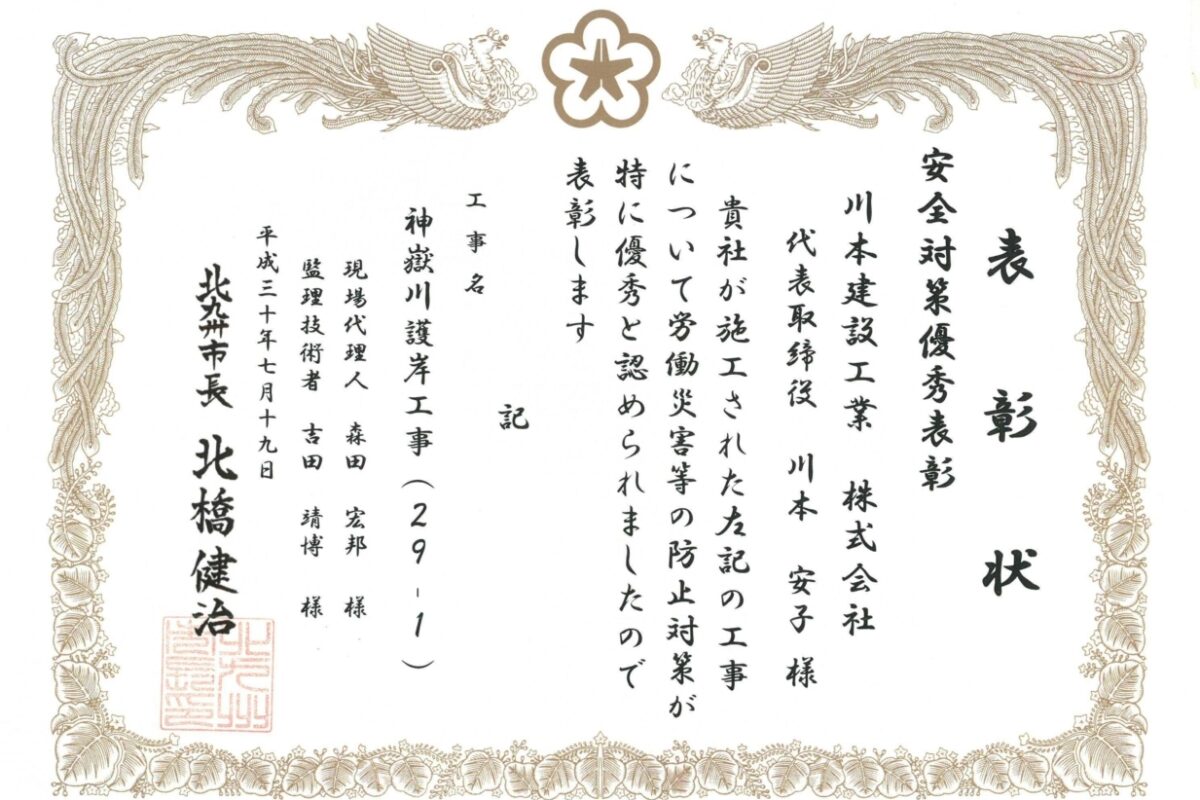 表彰状
安全対策優秀表彰
川本建設工業 株式会社
代表取締役 川本 安子 様
貴社が施工された左記の工事
について労働災害等の防止対策が
特に優秀と認められましたので
表彰します
記
工事名
神嶽川護岸工事(29-1)
現場代理人 森田 宏邦 様
監理技術者 吉田 靖博 様
平成三十年七月十九日
北九州市長 北橋健治